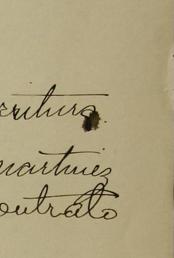 critura
martinez
ontrato